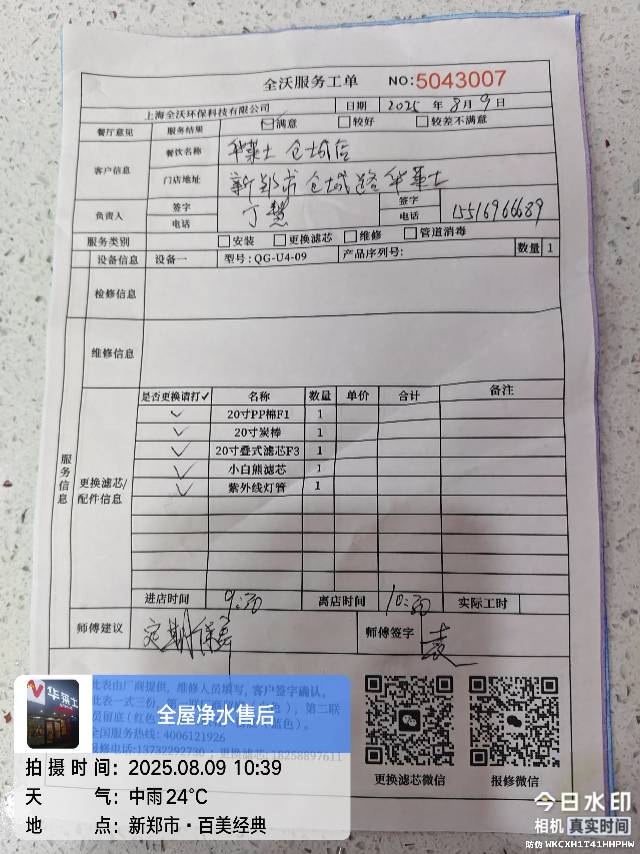 全沃服务工单 NO:5043007
上海全沃环保科技有限公司 日期 2025 年 8 月 9 日
餐厅意见 服务结果 满意 较好 较差不满意
客户信息 餐饮名称 华莱士 仓城店
门店地址 新郑市 仓城路 华莱士
负责人 签字 电话 丁慧 签字 电话 15516966689
服务类别 安装 更换滤芯 维修 管道消毒
设备信息 设备一 型号:QG-U4-09 产品序列号: 数量 1
检修信息
维修信息
服务信息
更换滤芯/配件信息
是否更换请打✓ 名称 数量 单价 合计 备注
✓ 20寸PP棉F1 1
✓ 20寸炭棒 1
✓ 20寸叠式滤芯F3 1
✓ 小白熊滤芯 1
✓ 紫外线灯管 1
进店时间 9:30 离店时间 10:30 实际工时
师傅建议 定期保养 师傅签字 袁
此表由厂商提供，维修人员填写，客户签字确认。
此表一式三份，第一 色），第二联
员留底(红色 蓝色）。
全国服务热线: 4006121926
报修电话:13732292730 更换滤芯:18258897611
更换滤芯微信 报修微信
华莱士
全屋净水售后
拍摄时间: 2025.08.09 10:39
天气: 中雨 24℃
地点: 新郑市·百美经典
今日水印
相机 真实时间
防伪 WKCXH1T41HHPHW